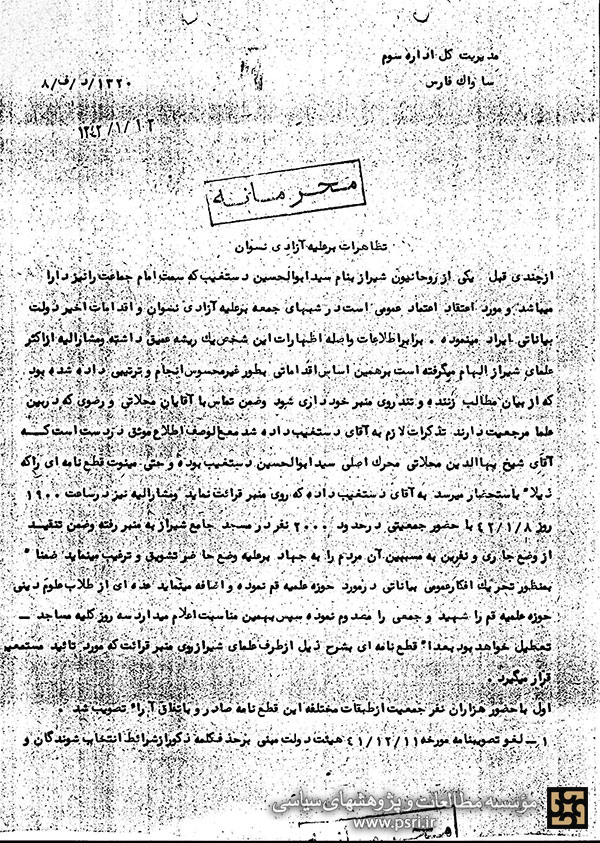 مدیریت کل اداره سوم
ساواک فارس
۸/ف/د/۱۳۲۰
۱۳۴۲/۱/۱۲
محرمانه
تظاهرات برعلیه آزادی نسوان
ازچندی قبل یکی از روحانیون شیراز بنام سید ابوالحسین دستغیب که سمت امام جماعت رانیز دارا
میباشد و مورد اعتقاد اعتماد عمومی است در شبهای جمعه برعلیه آزادی نسوان و اقدامات اخیر دولت
بیاناتی ایراد مینموده . برابر اطلاعات واصله اظهارات این شخص یک ریشه عمیق داشته ومشارالیه ازاکثر
علمای شیراز الهام میگرفته است برهمین اساس اقداماتی بطور غیرمحسوس انجام و ترتیبی داده شده بود
که از بیان مطالب زننده و تند روی منبر خود داری شود وضمن تماس با آقایان محلاتی و رضوی که در بین
علما مرجعیت دارند تذکرات لازم به آقای دستغیب داده شد مع الوصف اطلاع موثق در دست است که
آقای شیخ بهاالدین محلاتی محرک اصلی سید ابوالحسین دستغیب بوده و حتی مینوت قطع نامه ای راکه
ذیلا" باستحضار میرسد به آقای دستغیب داده که روی منبر قرائت نماید ومشارالیه نیز در ساعت ۱۹۰۰
روز ۴۲/۱/۸ با حضور جمعیتی درحدود ۲۰۰۰ نفر در مسجد جامع شیراز به منبر رفته وضمن تنقید
از وضع جاری و نفرین به مسببین آن مردم را به جهاد برعلیه وضع حاضر تشویق و ترغیب مینماید ضمنا"
بمنظور تحریک افکار عمومی بیاناتی در مورد حوزه علمیه قم نموده و اضافه مینماید عده ای از طلاب علوم دینی
حوزه علمیه قم را شهید و جمعی را مصدوم نموده سپس بهمین مناسبت اعلام میدارد سه روز کلیه مساجد ــ
تعطیل خواهد بود بعدا" قطع نامه ای بشرح ذیل ازطرف علمای شیراز روی منبر قرائت که مورد تائید مستمعین
قرار میگیرد .
اول با حضور هزاران نفر جمعیت از طبقات مختلفه این قطع نامه صادر و باتفاق آراء تصویب شد .
۱ــ لغو تصویبنامه مورخه ۴۱/۱۲/۱۱ هیئت دولت مبنی برحذف کلمه ذکور از شرائط انتخاب شوندگان و
مؤسسه مطالعات و پژوهشهای سیاسی
www.psri.ir